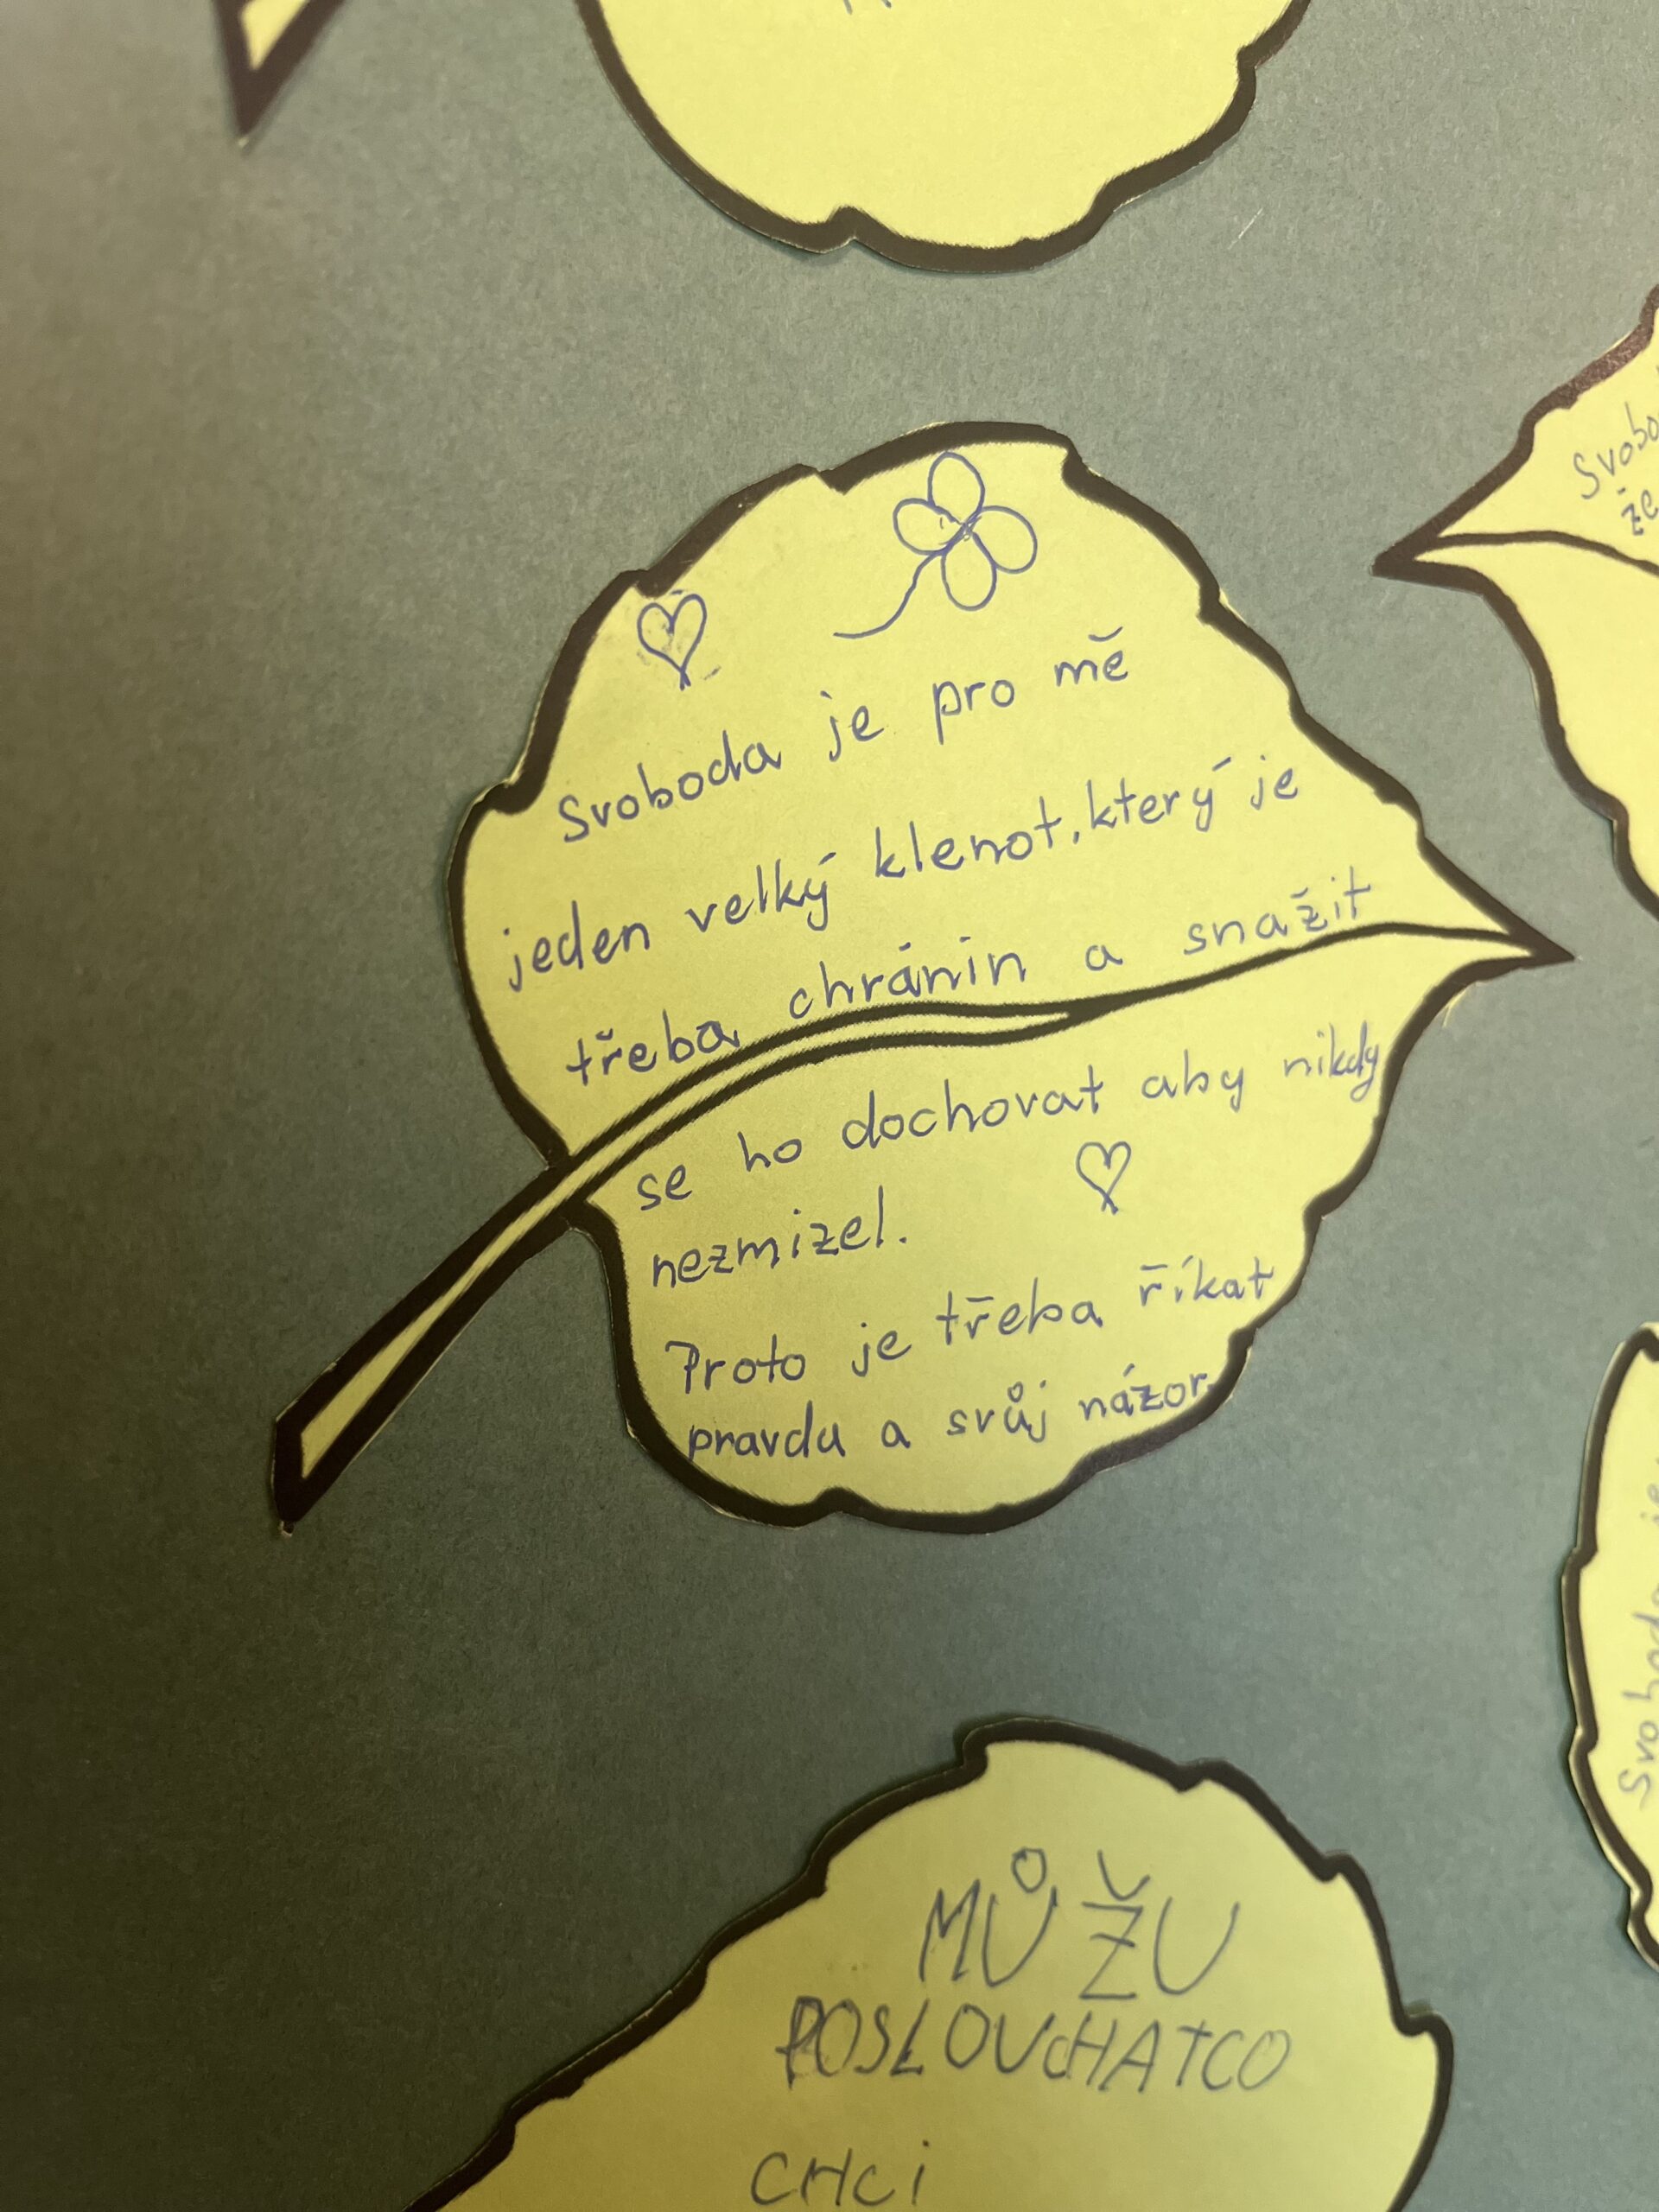 Svoboda je pro mě
jeden velký klenot, který je
třeba chránin a snažit
se ho dochovat aby nikdy
nezmizel.
Proto je třeba říkat
pravdu a svůj názor.
Svobo
že
Svoboda je
MŮŽU
POSLOUCHATCO
CHCi